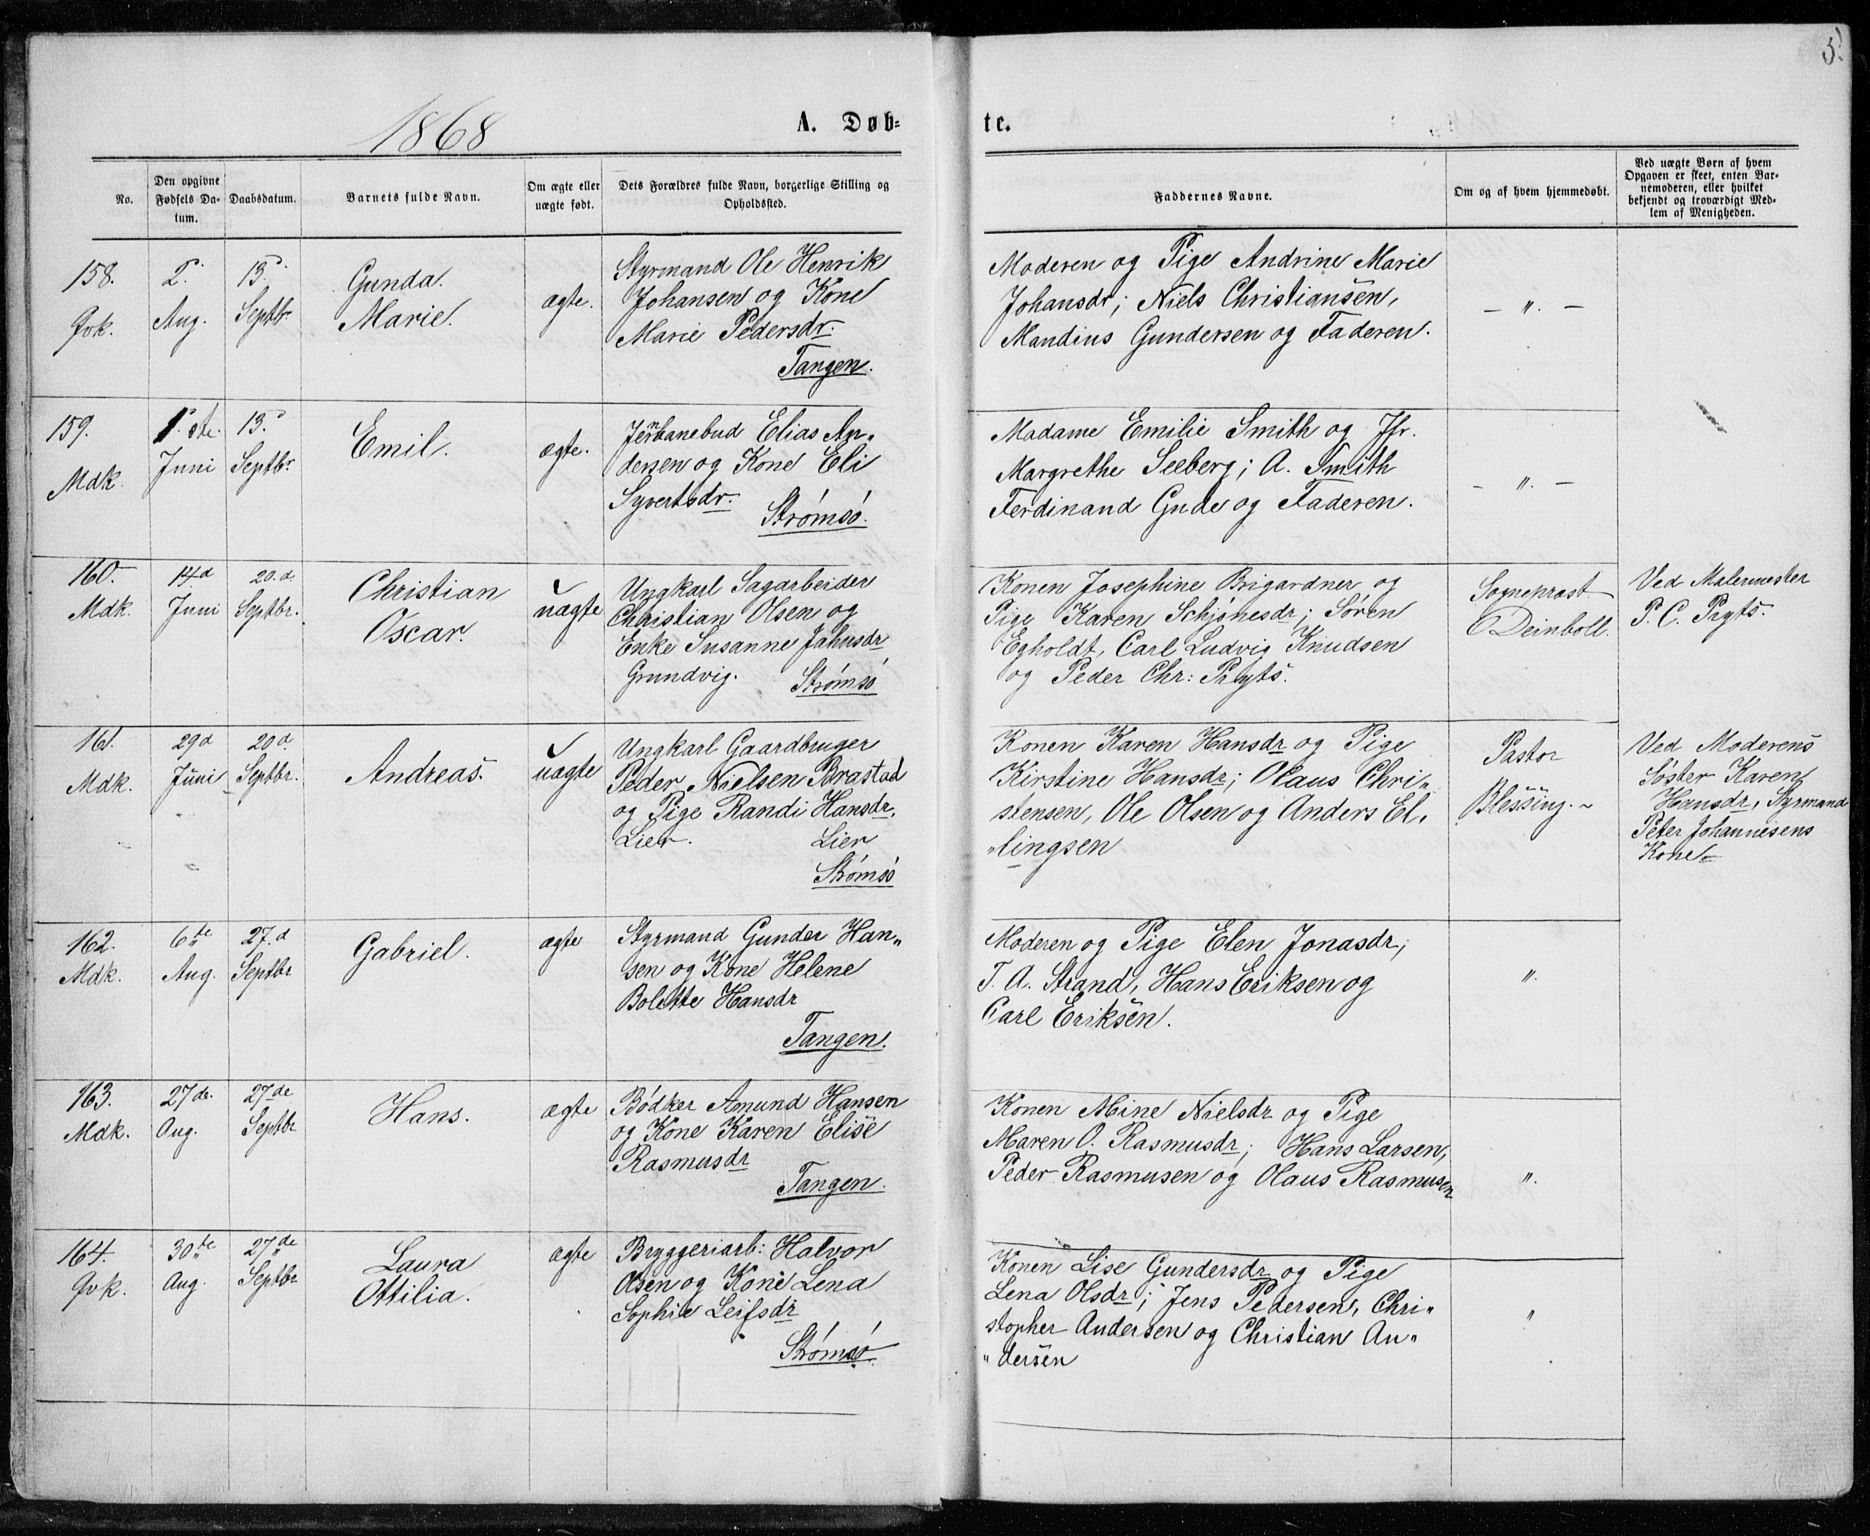 5.
1868
A. Døb-
te.
No.
Den opgivne
Fødsels Da-
tum.
Daabsdatum.
Barnets fulde Navn.
Om ægte eller
uægte født.
Dets Forældres fulde Navn, borgerlige Stilling og
Opholdssted.
Faddernes Navne.
Om og af hvem hjemmedøbt.
Ved uægte Børn af hvem
Opgaven er skeet, enten Bar-
nemoderen, eller hvilket
bekjendt og troværdigt Med-
lem af Menigheden.
158.
Qvk.
2.
Aug.
13.
Septbr.
Gunda
Marie.
ægte.
Styrmand Ole Henrik
Johansen og Kone
Marie Pedersdr.
Tangen.
Moderen og Pige Andrine Marie
Johansdr; Niels Christiansen,
Mandius Gundersen og Faderen.
— „ —
159.
Mdk.
1ste.
Juni
13.
Septbr.
Emil.
ægte.
Jernbanebud Elias An„
dersen og Kone Eli
Syvertsdr.
Strømsø.
Madame Emilie Smith og Jfr.
Margrethe Seeberg; A. Smith
Ferdinand Gude og Faderen.
— „ —
160.
Mdk
14d
Juni
20.d.
Septbr.
Christian
Oscar.
uægte
Ungkarl Sagarbeider
Christian Olsen og
Enke Susanne Jahnsdr
Grundvig.
Strømsø
Konen Josephine Brigardner og
Pige Karen Schjønesdr; Søren
Egholdt, Carl Ludvig Knudsen
og Peder Chr: Pryts.
Sogneprast
Deinboll.
Ved Malermester
P. C. Pryts.
161.
Mdk.
29d
Juni
20d.
Septbr.
Andreas.
uægte
Ungkarl Gaardbruger
Peder Nielsen Brastad
og Pige Randi Hansdr.
Lier. Lier
Strømsø
Konen Karen Hansdr og Pige
Kirstine Hansdr; Olaus Chri„
stensen, Ole Olsen og Anders El„
„lingsen
Pastor
Blessing.
Ved Moderens
Søster Karen
Hansdr, Styrmand
Peter Johannesens
Kone
162.
Mdk.
6te
Aug.
27.d
Septbr
Gabriel.
ægte
Styrmand Gunder Han„
sen og Kone Helene
Bolette Hansdr
Tangen.
Moderen og Pige Elen Jonasdr;
T. A. Strand, Hans Eriksen og
Carl Eriksen.
„
163.
Mdk.
27de.
Aug.
27de
Septbr
Hans.
ægte
Bødker Amund Hansen
og Kone Karen Elise
Rasmusdr
Tangen.
Konen Mine Nielsdr og Pige
Maren O. Rasmusdr; Hans Larsen,
Peder Rasmusen og Olaus Rasmusen
„
164.
Qvk.
30te
Aug.
27de
Septbr
Laura
Ottilia.
ægte
Bryggeriarb: Halvor
Olsen og Kone Lena
Sophie Leifsdr
Strømsø.
Konen Lise Gundersdr og Pige
Lena Olsdr; Jens Pedersen, Chri„
stopher Andersen og Christian An„
„dersen
„